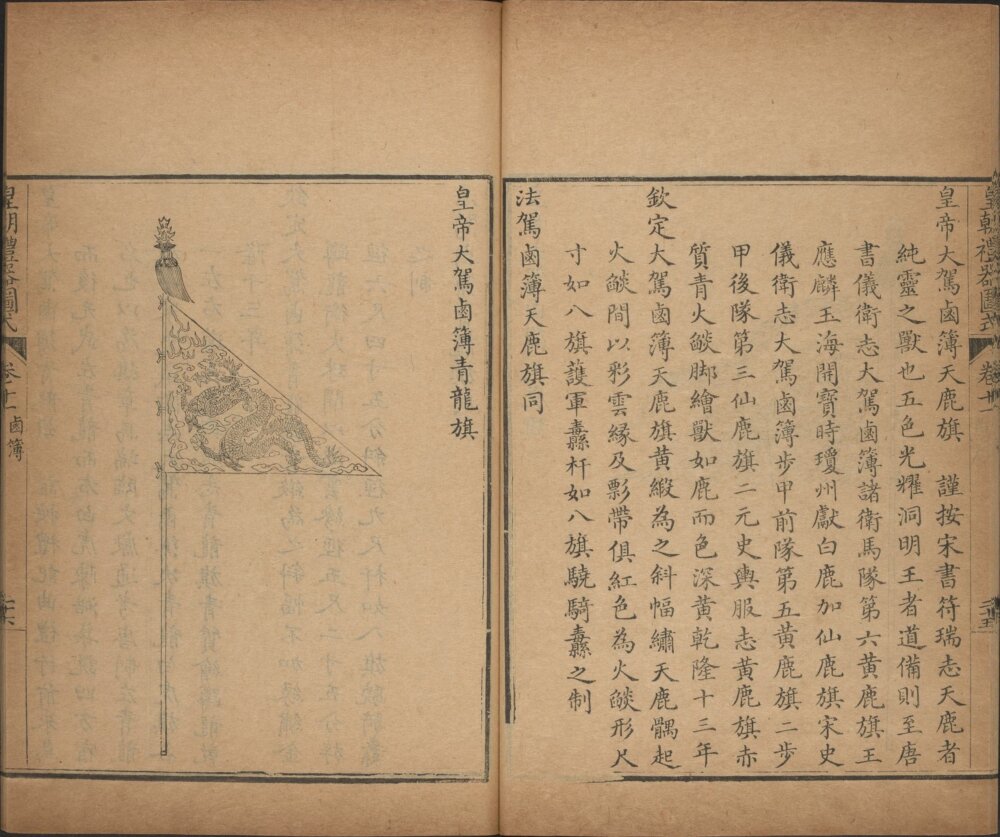 皇朝禮器圖式 卷十一
皇帝大駕鹵簿天鹿旗 謹按宋書符瑞志天鹿者
純靈之獸也五色光耀洞明王者道備則至唐
書儀衛志大駕鹵簿諸衛馬隊第六黃鹿旗王
應麟玉海開寶時瓊州獻白鹿加仙鹿旗宋史
儀衛志大駕鹵簿步甲前隊第五黃鹿旗二步
甲後隊第三仙鹿旗二元史輿服志黃鹿旗赤
質青火燄脚繪獸如鹿而色深黃乾隆十三年
欽定大駕鹵簿天鹿旗黃緞為之斜幅繡天鹿髃起
火燄間以彩雲緣及影帶俱紅色為火燄形尺
寸如八旗護軍纛杆如八旗驍騎纛之制
法駕鹵簿天鹿旗同
皇帝大駕鹵簿青龍旗
皇朝禮器圖式 卷十一 鹵簿